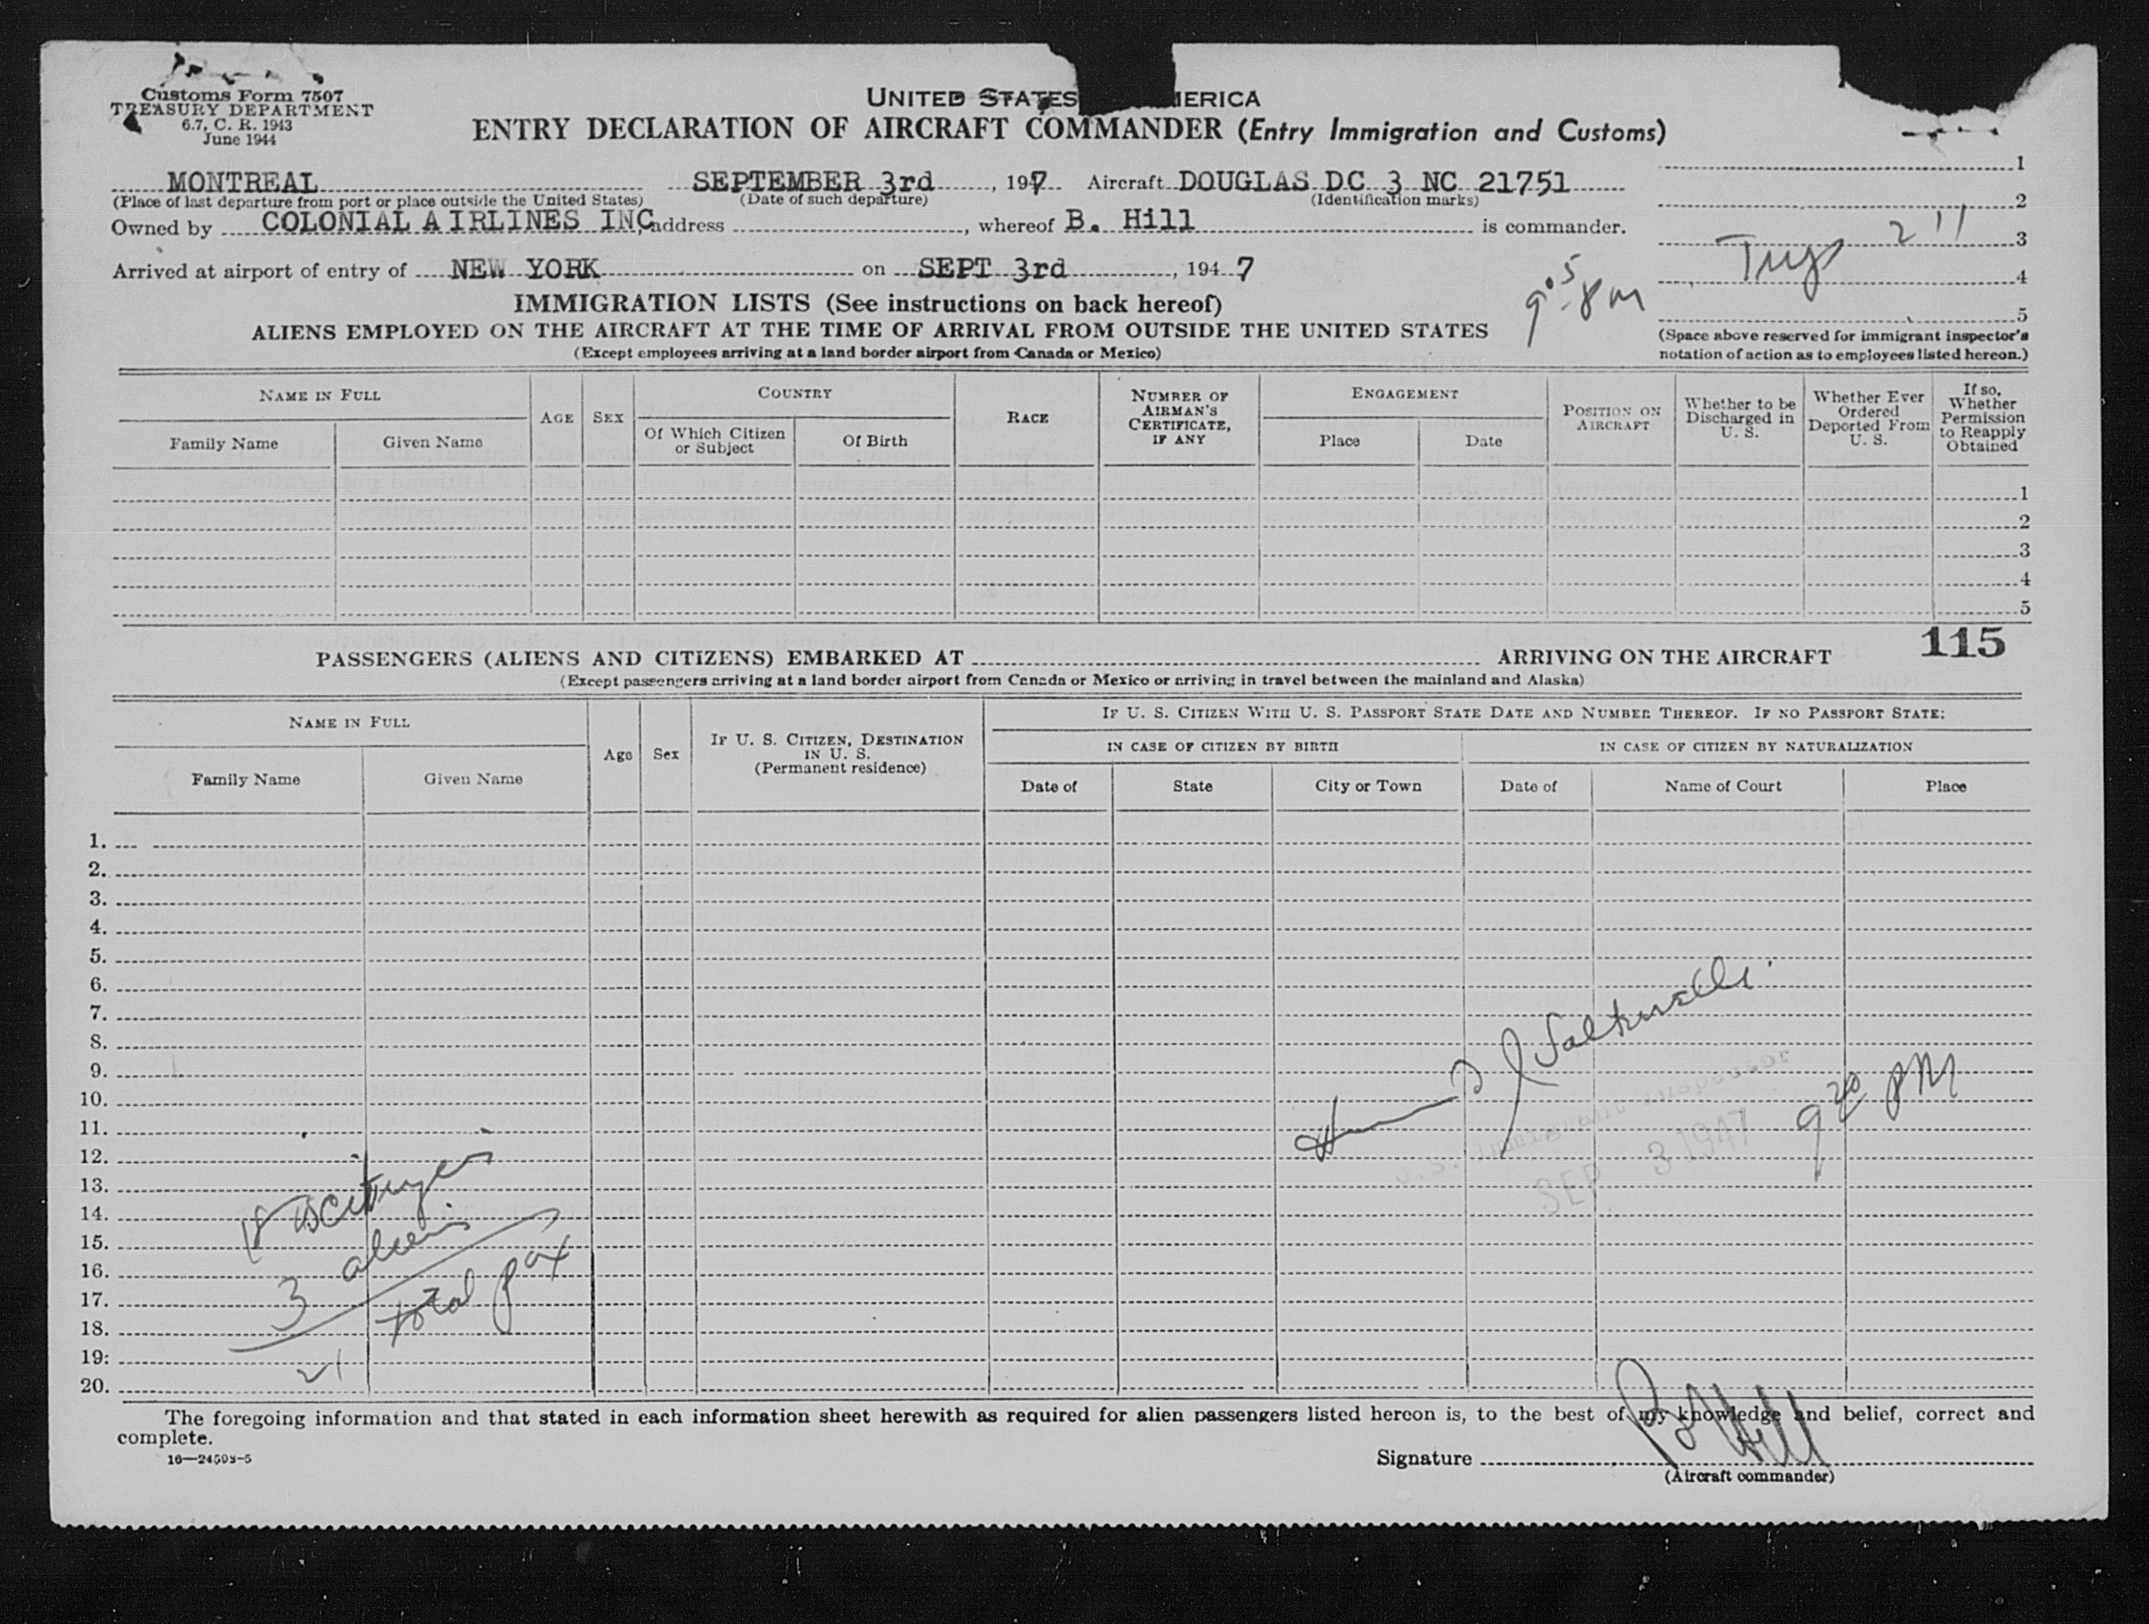 Customs Form 7507
TREASURY DEPARTMENT
6.7, C. R. 1943
June 1944
UNITED STATES
ENTRY DECLARATION OF AIRCRAFT COMMANDER (Entry Immigration and Customs)
MONTREAL SEPTEMBER 3rd, 1947 Aircraft DOUGLAS DC 3 NC 21751
(Place of last departure from port or place outside the United States) (Date of such departure) (Identification marks)
Owned by COLONIAL AIRLINES INC, address , whereof B. Hill is commander.
Arrived at airport of entry of NEW YORK on SEPT 3rd, 1947
1
2
3
4
5
Trip 211
9 05 PM
(Space above reserved for immigrant inspector's
notation of action as to employees listed hereon.)
IMMIGRATION LISTS (See instructions on back hereof)
ALIENS EMPLOYED ON THE AIRCRAFT AT THE TIME OF ARRIVAL FROM OUTSIDE THE UNITED STATES
(Except employees arriving at a land border airport from Canada or Mexico)
NAME IN FULL
Family Name Given Name
AGE SEX
COUNTRY
Of Which Citizen or Subject
Of Birth
RACE
NUMBER OF AIRMAN'S CERTIFICATE, IF ANY
ENGAGEMENT
Place Date
POSITION ON AIRCRAFT
Whether to be Discharged in U. S.
Whether Ever Ordered Deported From U. S.
If so, Whether Permission to Reapply Obtained
1
2
3
4
5
115
PASSENGERS (ALIENS AND CITIZENS) EMBARKED AT ARRIVING ON THE AIRCRAFT
(Except passengers arriving at a land border airport from Canada or Mexico or arriving in travel between the mainland and Alaska)
NAME IN FULL
Family Name Given Name
Age Sex
IF U. S. CITIZEN, DESTINATION IN U. S.
(Permanent residence)
IF U. S. CITIZEN WITH U. S. PASSPORT STATE DATE AND NUMBER THEREOF. IF NO PASSPORT STATE:
IN CASE OF CITIZEN BY BIRTH IN CASE OF CITIZEN BY NATURALIZATION
Date of State City or Town Date of Name of Court Place
1.
2.
3.
4.
5.
6.
7.
8.
9.
10.
11.
12.
13.
14.
15.
16.
17.
18.
19.
20.
U. S. Immigrant Inspector
SEP 3 1947
9 20 PM
18 citizens
3 aliens
21 total pax
The foregoing information and that stated in each information sheet herewith as required for alien passengers listed hereon is, to the best of my knowledge and belief, correct and
complete.
16—24598-5
Signature B Hill
(Aircraft commander)